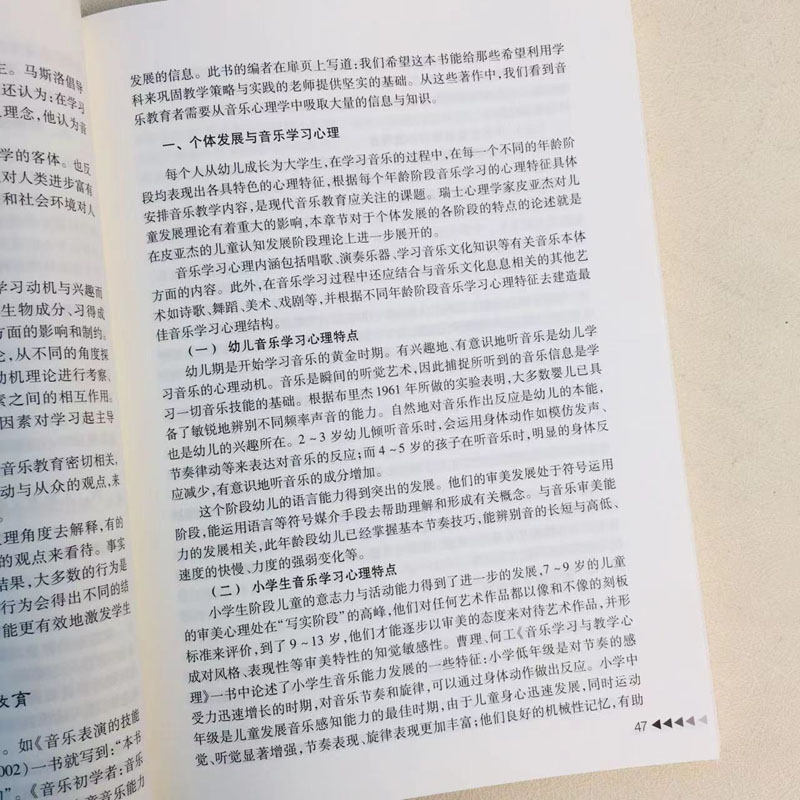 主。马斯洛倡导
还认为:在学习
理念,他认为音
学的客体。也反
对人类进步富有
和社会环境对人
学习动机与兴趣而
生物成分、习得成
方面的影响和制约。
论,从不同的角度探
动机理论进行考察、
素之间的相互作用。
因素对学习起主导
音乐教育密切相关,
动与从众的观点,来
理角度去解释,有的
的观点来看待。事实
结果,大多数的行为是
行为会得出不同的结
能更有效地激发学生
教育
。如《音乐表演的技能
002)一书就写到:“本书
”。《音乐初学者:音乐
音乐能力
发展的信息。此书的编者在扉页上写道:我们希望这本书能给那些希望利用学
科来巩固教学策略与实践的老师提供坚实的基础。从这些著作中,我们看到音
乐教育者需要从音乐心理学中吸取大量的信息与知识。
一、个体发展与音乐学习心理
每个人从幼儿成长为大学生,在学习音乐的过程中,在每一个不同的年龄阶
段均表现出各具特色的心理特征,根据每个年龄阶段音乐学习的心理特征具体
安排音乐教学内容,是现代音乐教育应关注的课题。瑞士心理学家皮亚杰对儿
童发展理论有着重大的影响,本章节对于个体发展的各阶段的特点的论述就是
在皮亚杰的儿童认知发展阶段理论上进一步展开的。
音乐学习心理内涵包括唱歌、演奏乐器、学习音乐文化知识等有关音乐本体
方面的内容。此外,在音乐学习过程中还应结合与音乐文化息息相关的其他艺
术如诗歌、舞蹈、美术、戏剧等,并根据不同年龄阶段音乐学习心理特征去建造最
佳音乐学习心理结构。
(一) 幼儿音乐学习心理特点
幼儿期是开始学习音乐的黄金时期。有兴趣地、有意识地听音乐是幼儿学
习音乐的心理动机。音乐是瞬间的听觉艺术,因此捕捉所听到的音乐信息是学
习一切音乐技能的基础。根据布里杰1961年所做的实验表明,大多数婴儿已具
备了敏锐地辨别不同频率声音的能力。自然地对音乐作出反应是幼儿的本能,
也是幼儿的兴趣所在。2~3岁幼儿倾听音乐时,会运用身体动作如模仿发声、
节奏律动等来表达对音乐的反应;而4~5岁的孩子在听音乐时,明显的身体反
应减少,有意识地听音乐的成分增加。
这个阶段幼儿的语言能力得到突出的发展。他们的审美发展处于符号运用
阶段,能运用语言等符号媒介手段去帮助理解和形成有关概念。与音乐审美能
力的发展相关,此年龄段幼儿已经掌握基本节奏技巧,能辨别音的长短与高低、
速度的快慢、力度的强弱变化等。
(二) 小学生音乐学习心理特点
小学生阶段儿童的意志力与活动能力得到了进一步的发展,7~9岁的儿童
的审美心理处在“写实阶段”的高峰,他们对任何艺术作品都以像和不像的刻板
标准来评价,到了9~13岁,他们才能逐步以审美的态度来对待艺术作品,并形
成对风格、表现性等审美特性的知觉敏感性。曹理、何工《音乐学习与教学心
理》一书中论述了小学生音乐能力发展的一些特征:小学低年级是对节奏的感
受力迅速增长的时期,对音乐节奏和旋律,可以通过身体动作做出反应。小学中
年级是儿童发展音乐感知能力的最佳时期,由于儿童身心迅速发展,同时运动
觉、听觉显著增强,节奏表现、旋律表现更加丰富;他们良好的机械性记忆,有助
47